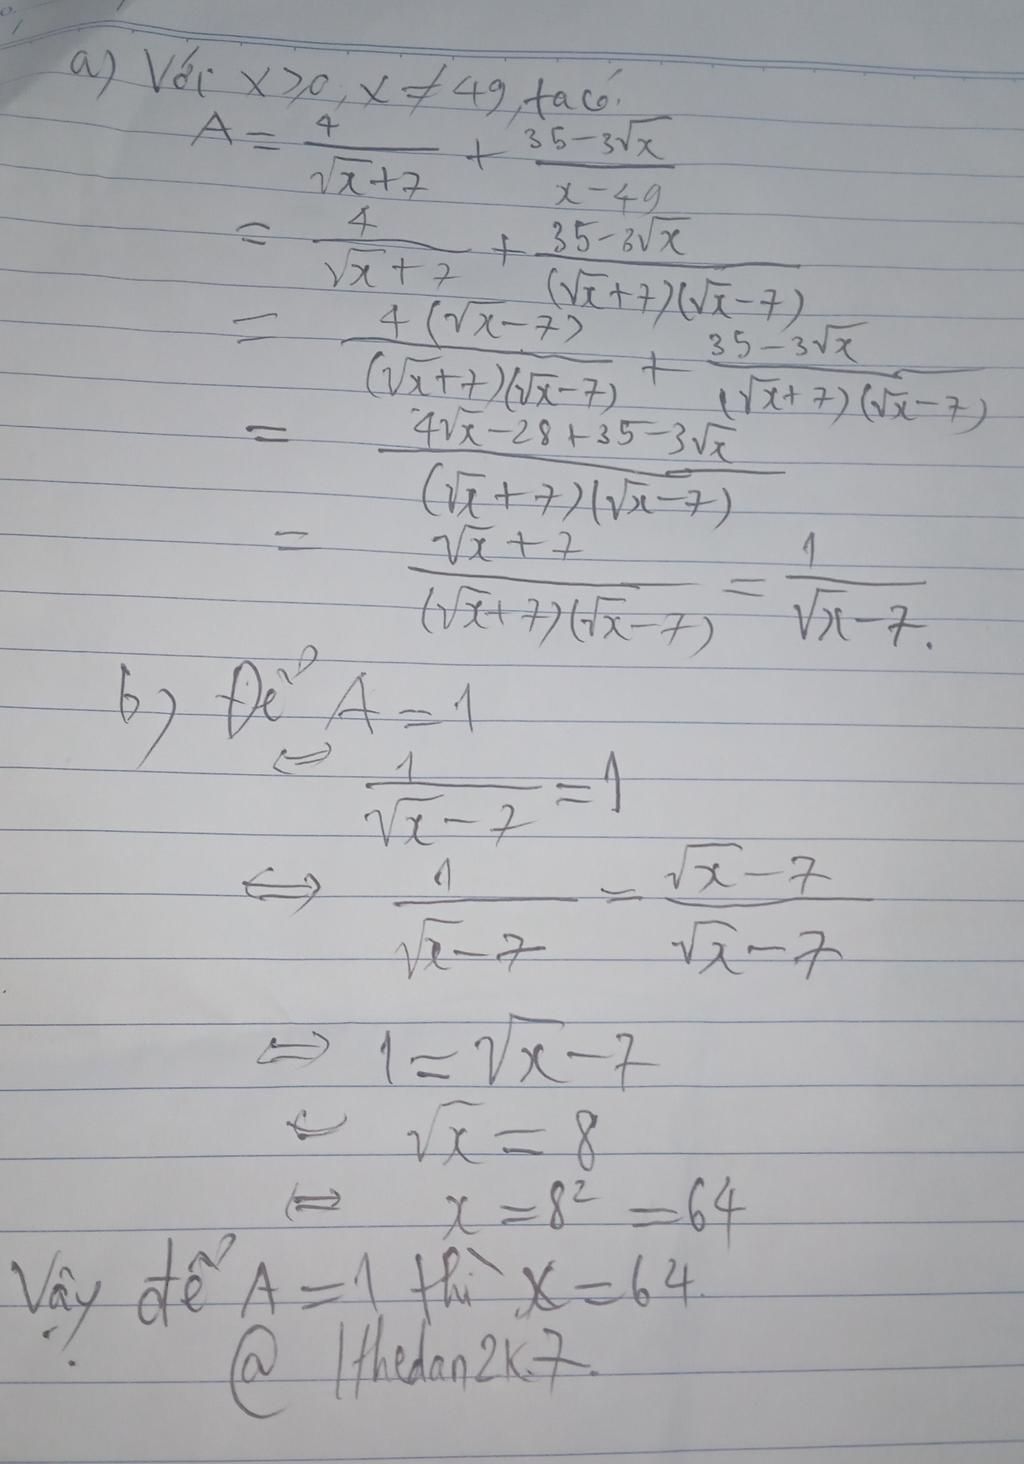 a) Với x ≥ 0, x ≠ 49, ta có:
A = 4/(√x+7) + (35-3√x)/(x-49)
= 4/(√x+7) + (35-3√x)/((√x+7)(√x-7))
= 4(√x-7)/((√x+7)(√x-7)) + (35-3√x)/((√x+7)(√x-7))
= (4√x-28+35-3√x)/((√x+7)(√x-7))
= (√x+7)/((√x+7)(√x-7)) = 1/(√x-7).
b) Để A = 1
⇔ 1/(√x-7) = 1
⇔ 1/(√x-7) = (√x-7)/(√x-7)
⇔ 1 = √x-7
⇔ √x = 8
⇔ x = 8² = 64
Vậy để A = 1 thì x = 64.
@ 1thedan2k.7.